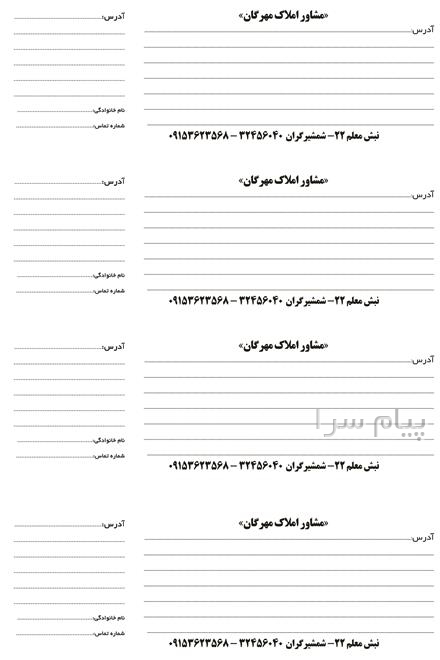 «مشاور املاک مهرگان»
آدرس:
نبش معلم ۲۲- شمشیرگران ۳۲۴۵۶۰۴۰ - ۰۹۱۵۳۶۲۳۵۶۸
آدرس:
نام خانوادگی:
شماره تماس:
«مشاور املاک مهرگان»
آدرس:
نبش معلم ۲۲- شمشیرگران ۳۲۴۵۶۰۴۰ - ۰۹۱۵۳۶۲۳۵۶۸
آدرس:
نام خانوادگی:
شماره تماس:
«مشاور املاک مهرگان»
آدرس:
پیام سرا
نبش معلم ۲۲- شمشیرگران ۳۲۴۵۶۰۴۰ - ۰۹۱۵۳۶۲۳۵۶۸
آدرس:
نام خانوادگی:
شماره تماس:
«مشاور املاک مهرگان»
آدرس:
نبش معلم ۲۲- شمشیرگران ۳۲۴۵۶۰۴۰ - ۰۹۱۵۳۶۲۳۵۶۸
آدرس:
نام خانوادگی:
شماره تماس: